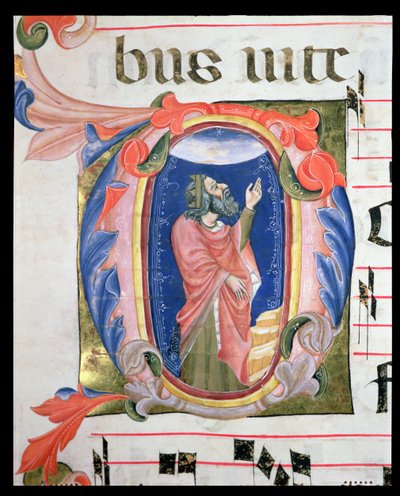 bus uite